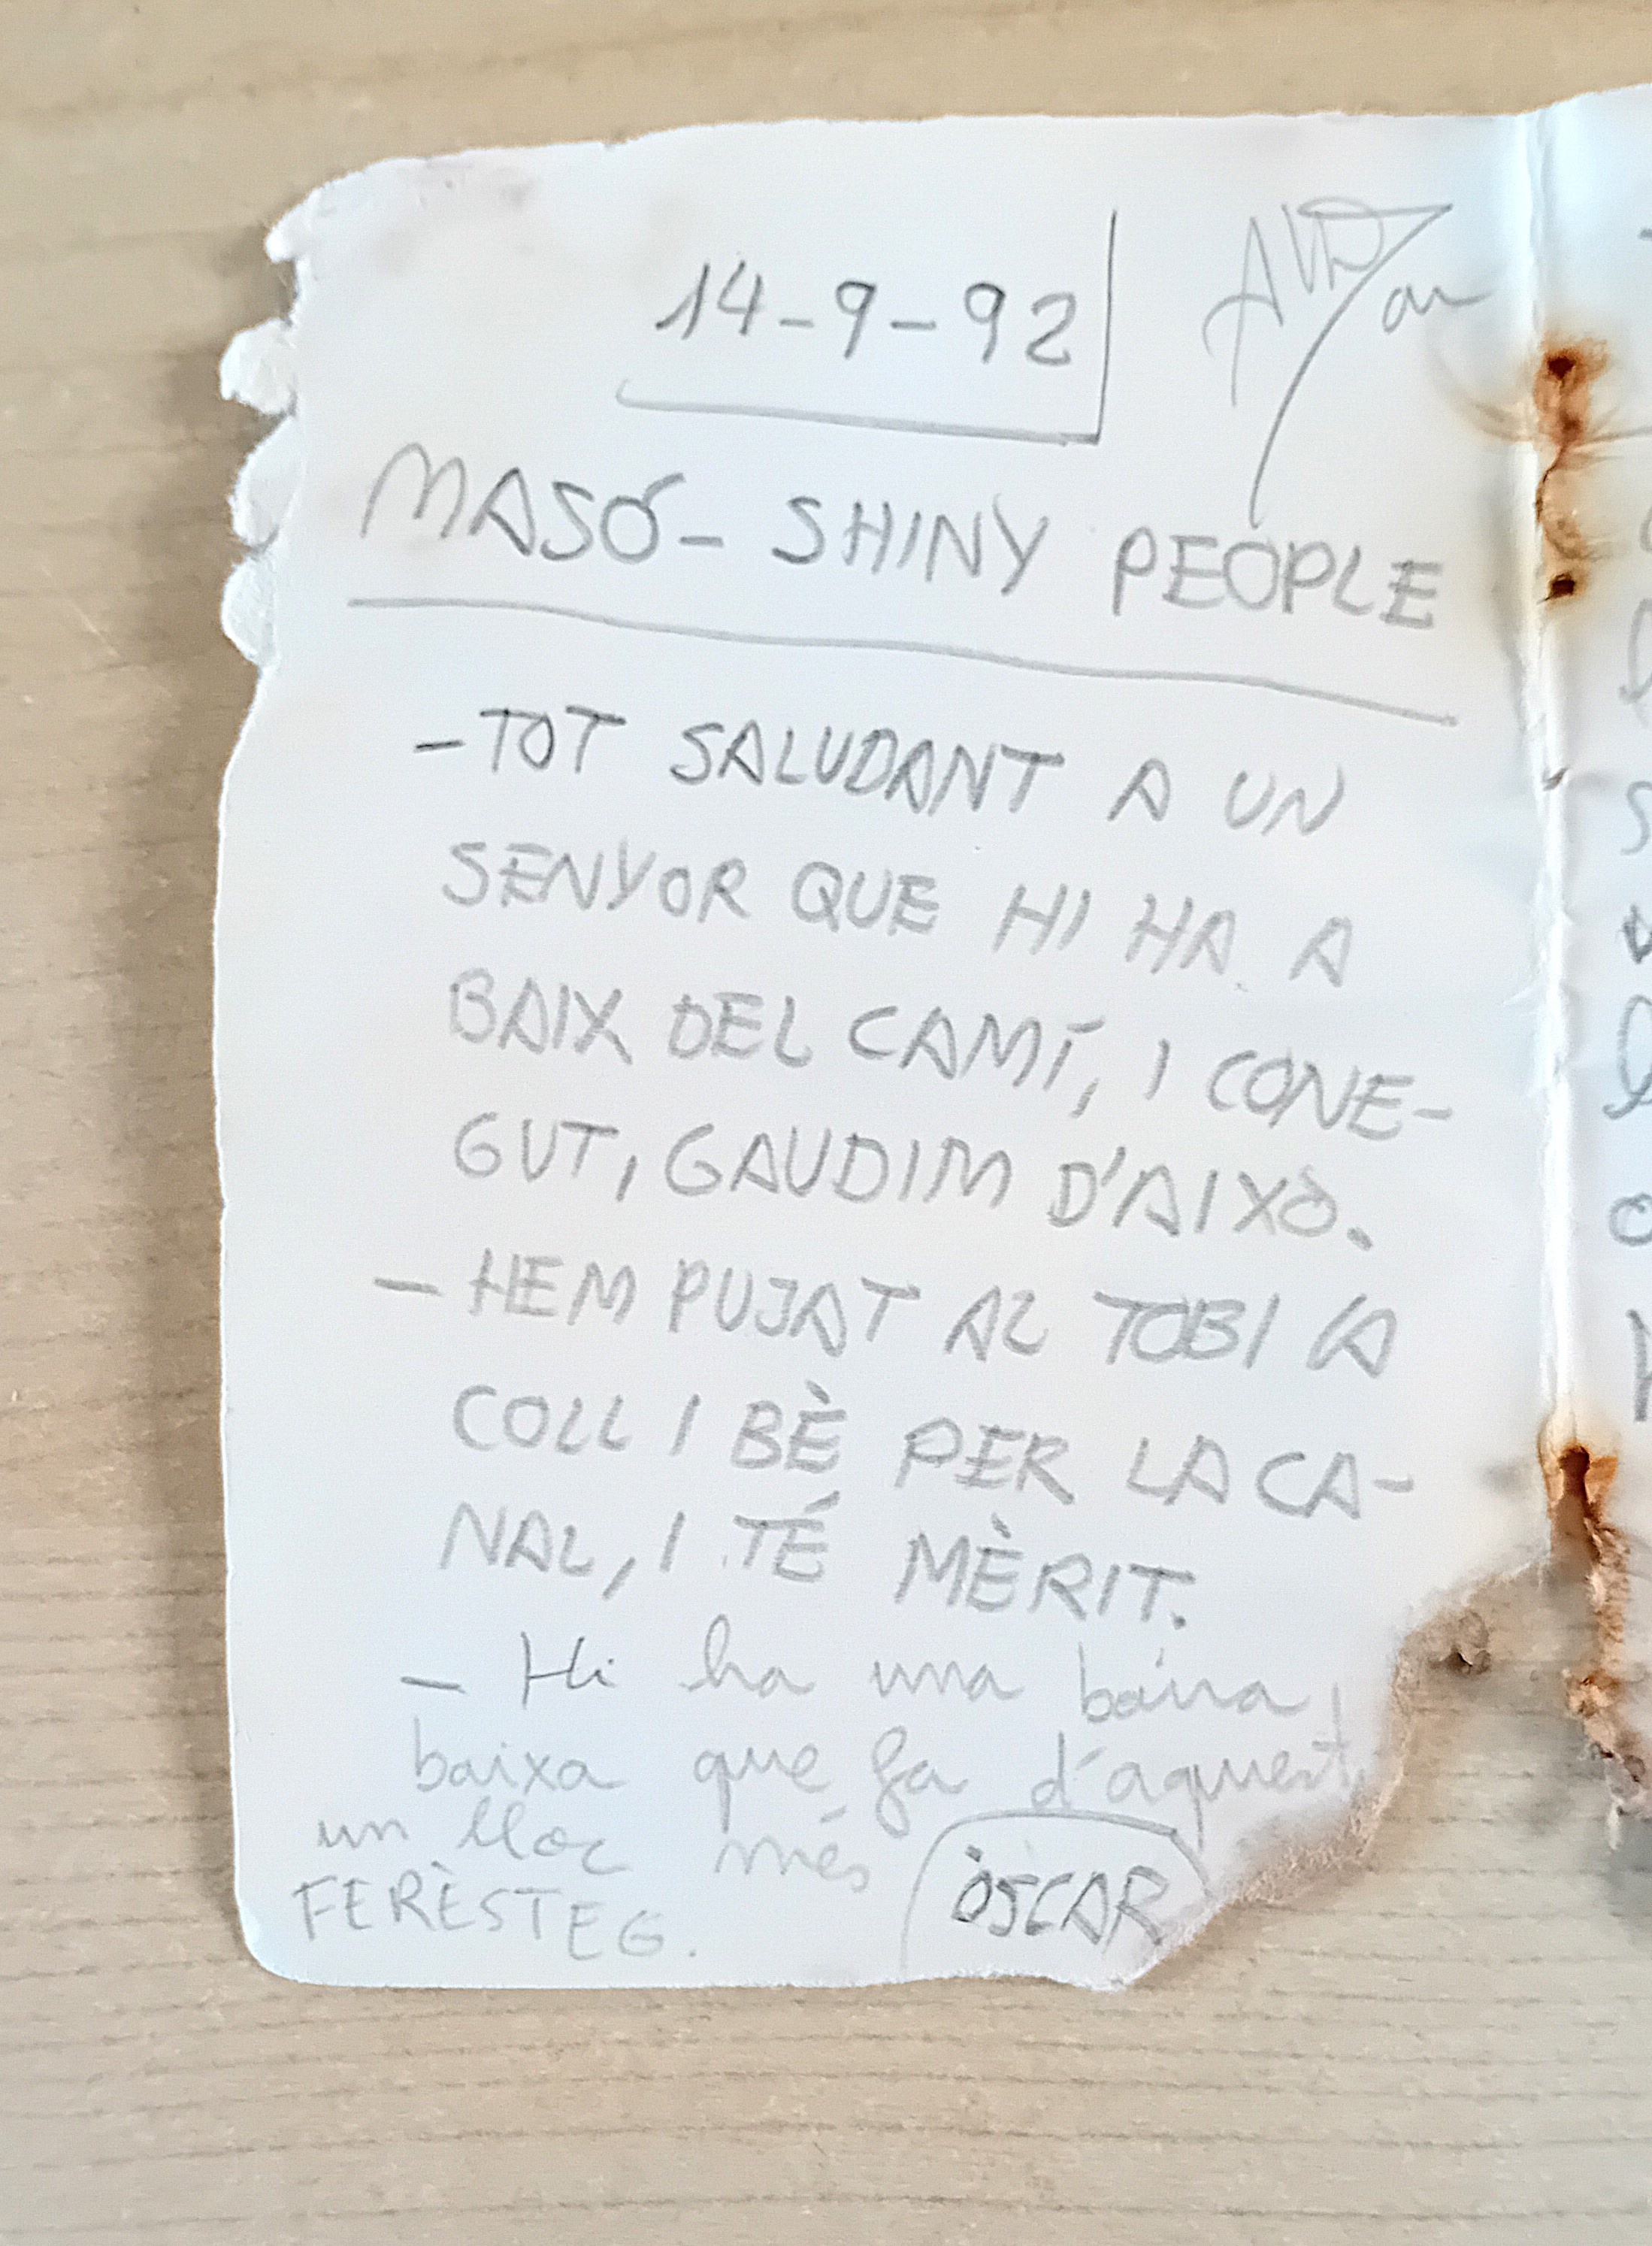 14-9-92
MASÓ- SHINY PEOPLE
-TOT SALUDANT A UN
SENYOR QUE HI HA A
BAIX DEL CAMÍ, I CONE-
GUT, GAUDIM D'AIXÒ.
- HEM PUJAT AL TOBI (A
COLL I BÈ PER LA CA-
NAL, I TÉ MÈRIT.
- Hi ha una boira
baixa que fa d'aquest
un lloc més
FERÈSTEG.
ÒSCAR